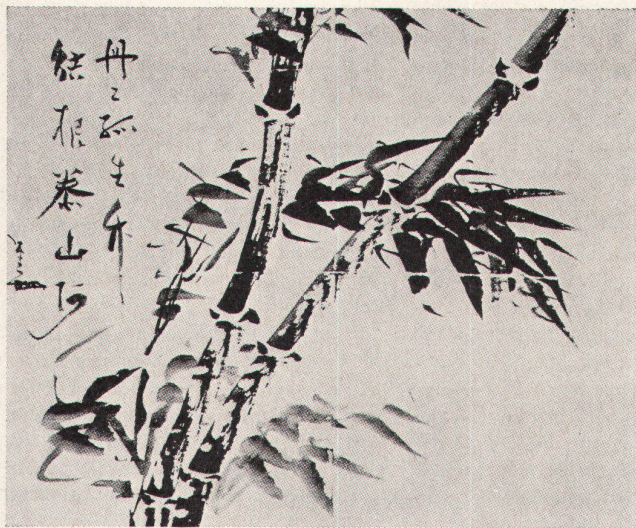 冉〻孤生竹
結根泰山阿